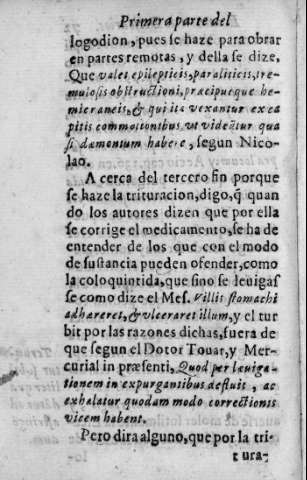 Primera parte del
logodion, pues se haze para obrar
en partes remotas, y della se dize,
Que vales epilepticis, paraliticis, tre-
mulosis obstructioni, præcipueque he-
micraneis, & qui ita vexantur ex ca
pitis commotionibus vt videãtur qua
si dæmonium habere, segun Nico-
lao.
A cerca del tercero fin porque
se haze la trituracion, digo, q̃ quan
do los autores dizen que por ella
se corrige el medicamento, se ha de
entender de los que con el modo
de sustancia pueden ofender, como
la coloquintida, que sino se leuigas
se como dize el Mes. Villis stomachi
adhareret, & vlceraret illum, y el tur
bit por las razones dichas, fuera de
que segun el Dotor Touar, y Mer-
curial in præsenti, Quod per leuiga-
tionem in expurgantibus defluit, ac
exhalatur quodam modo correctionis
vicem habent.
Pero dira alguno, que por la tri-
tura-